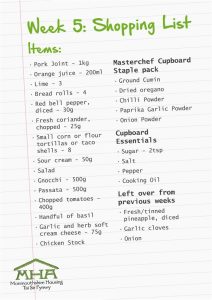 Week 5: Shopping List
Items:
· Pork Joint - 1kg
· Orange juice - 200ml
· Lime - 3
· Bread rolls - 4
· Red bell pepper,
diced - 30g
· Fresh coriander,
chopped - 25g
· Small corn or flour
tortillas or taco
shells - 8
· Sour cream - 50g
· Salad
· Gnocchi - 500g
· Passata - 500g
· Chopped tomatoes -
400g
· Handful of basil
· Garlic and herb soft
cream cheese - 75g
· Chicken Stock
Masterchef Cupboard
Staple pack
· Ground Cumin
· Dried oregano
· Chilli Powder
· Paprika Garlic Powder
· Onion Powder
Cupboard
Essentials
· Sugar - 2tsp
· Salt
· Pepper
· Cooking Oil
Left over from
previous weeks
· Fresh/tinned
pineapple, diced
· Garlic cloves
· Onion
MHA
Monmouthshire Housing
Tai Sir Fynwy